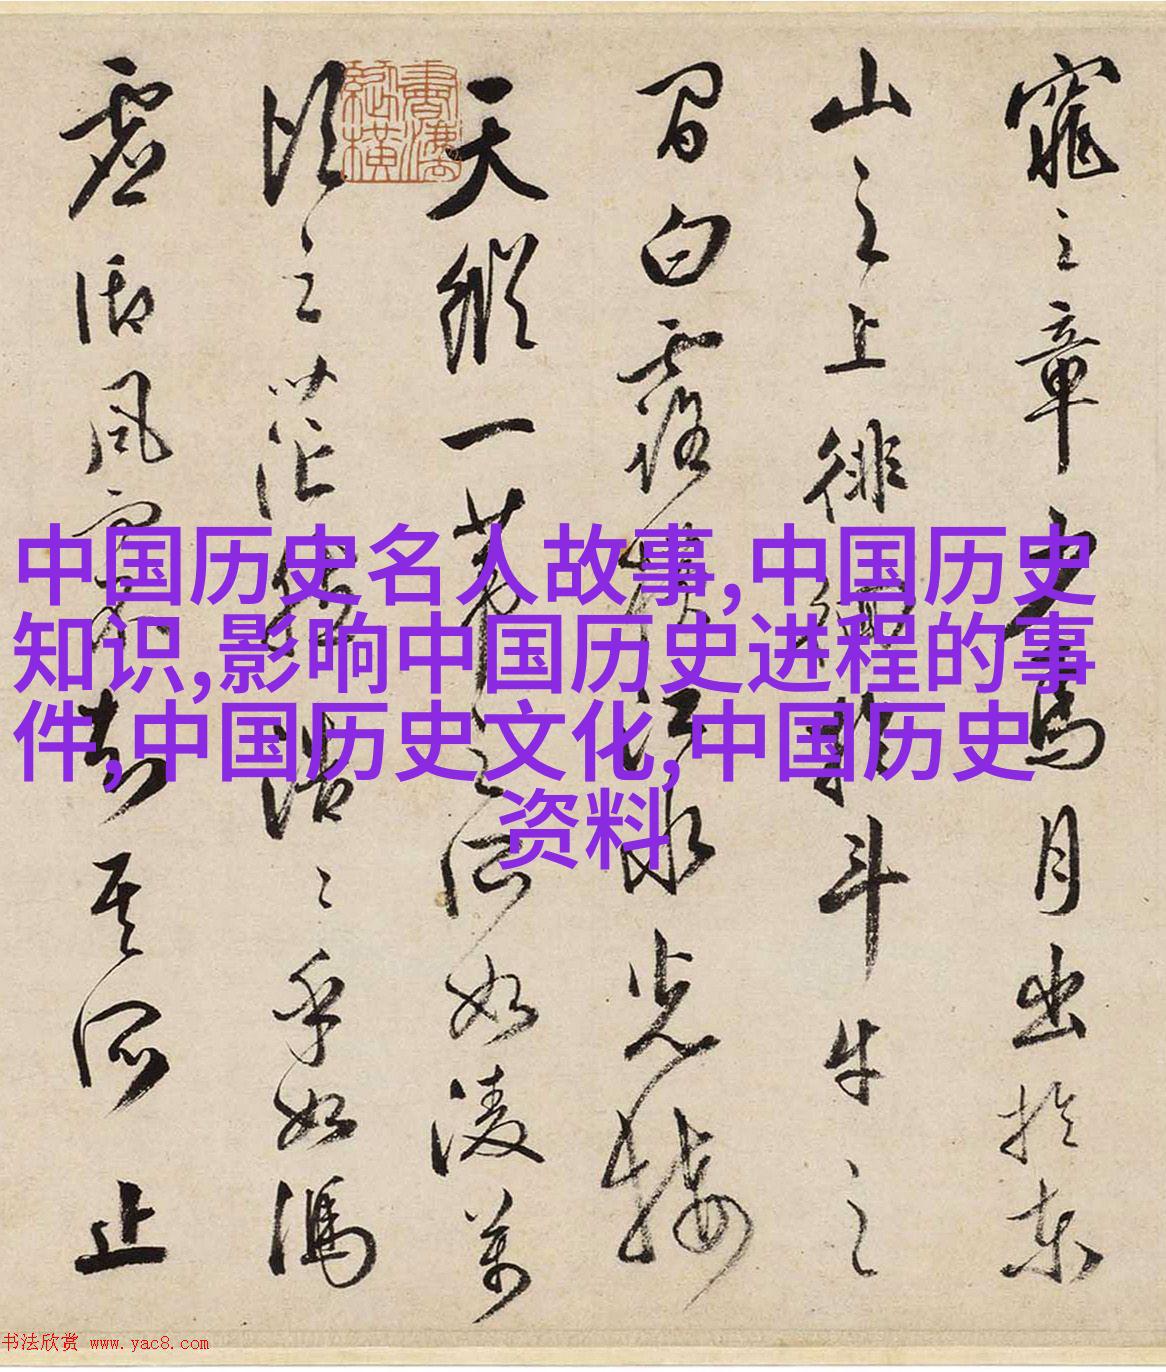 窕之章少焉月出於東
山之上徘徊於斗牛之
間白露橫江水光接
天縱一葦之所如凌萬
頃之茫然浩〻乎如馮
虛御風而不知其所止
中国历史名人故事,中国历史
知识,影响中国历史进程的事
件,中国历史文化,中国历史
资料
书法欣赏 www.yac8.com